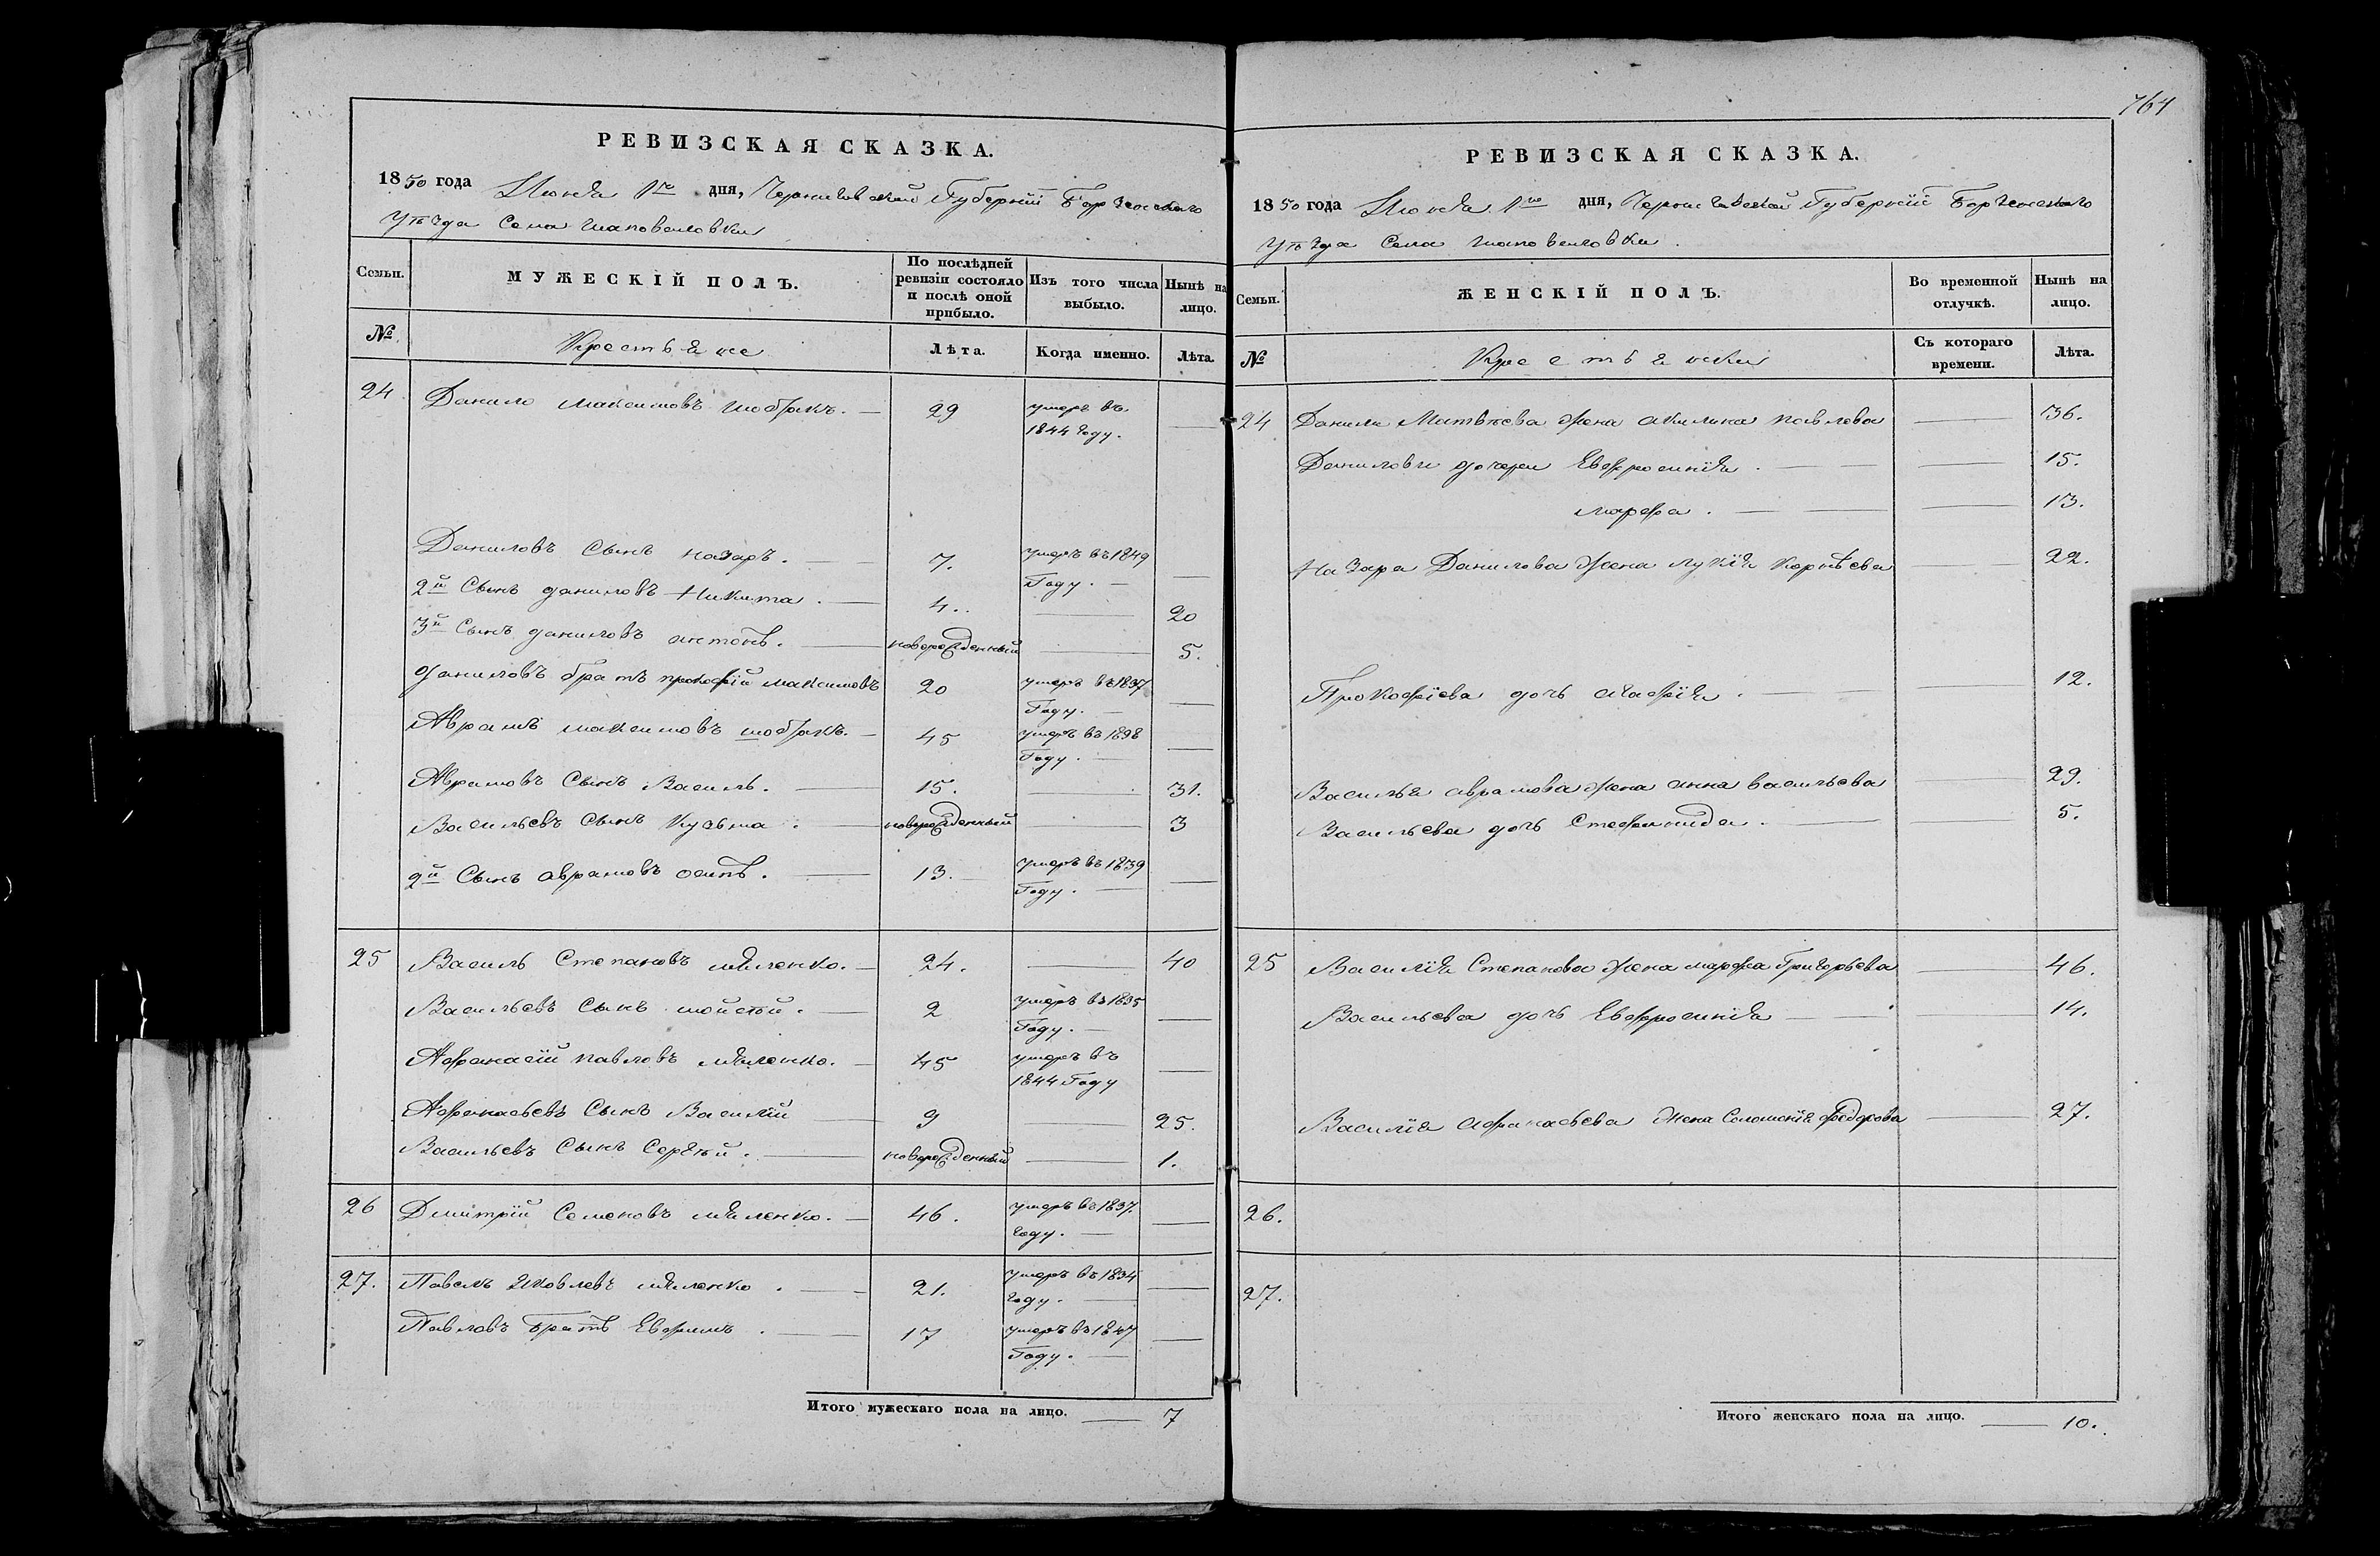 764
РЕВИЗСКАЯ СКАЗКА.
1850 года Июня 1го дня, Черниговской Губерніи Борзенскаго
Уѣзда Села Шаповаловки
Семьи.
МУЖЕСКІЙ ПОЛЪ.
По послѣдней ревизіи состояло и послѣ оной прибыло.
Изъ того числа выбыло.
Нынѣ на лицо.
№
Крестьяне
Лѣта.
Когда именно.
Лѣта.
24 Данило Максимовъ 29 умеръ въ 1844 году.
Даниловъ Сынъ Назаръ. 7. умеръ въ 1849 Году.
2й Сынъ Даниловъ Никита. 4. 20
3й Сынъ Даниловъ Антонъ. новорожденный 5.
Даниловъ братъ Прокофій Максимовъ 20 умеръ въ 1837 Году.
Аврамъ Максимовъ 45 умеръ въ Году.
Аврамовъ Сынъ Василь. 15. 31.
Васильевъ Сынъ Кузьма. новорожденный 3
2й Сынъ Аврамовъ Осипъ. 13. умеръ въ 1839 Году.
25 Василь Степановъ Миленко. 24. 40
Васильевъ Сынъ Мойсей. 2 умеръ въ 1835 Году.
Афанасій Павловъ Миленко. 45 умеръ въ 1844 Году
Афанасьевъ Сынъ Василій 9 25.
Васильевъ Сынъ Сергѣй. новорожденный 1.
26 Дмитрій Семеновъ Миленко. 46. умеръ въ 1837 году.
27. Павелъ Яковлевъ Миленко. 21. умеръ въ 1834 году.
Павловъ Братъ Евфимъ. 17 умеръ въ 1847 Году.
Итого мужескаго пола на лицо. 7
РЕВИЗСКАЯ СКАЗКА.
1850 года Июня 1го дня, Черниговской Губерніи Борзенскаго
Уѣзда Села Шаповаловки.
Семьи.
ЖЕНСКІЙ ПОЛЪ.
Во временной отлучкѣ.
Нынѣ на лицо.
№
Крестьянки
Съ котораго времени.
Лѣта.
24 Данила Матвѣева Жена Акилина Павлова 36.
Даниловы дочери Евфросинія. 15.
Марфа. 13.
Назара Данилова Жена Лукія Корнѣева 22.
Прокофіева дочь Агафія. 12.
Василья Аврамова Жена Анна Васильева 29.
Васильева дочь Стефанида. 5.
25 Василія Степанова Жена Марфа Григорьева 46.
Васильева дочь Евфросинія 14.
Василія Афанасьева Жена Соломонія Федорова 27.
26.
27.
Итого женскаго пола на лицо. 10.